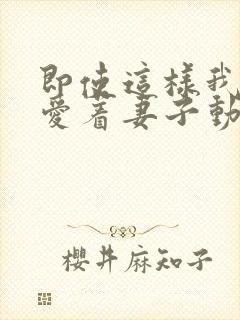 即使這樣我
愛著妻子動
櫻井麻知子